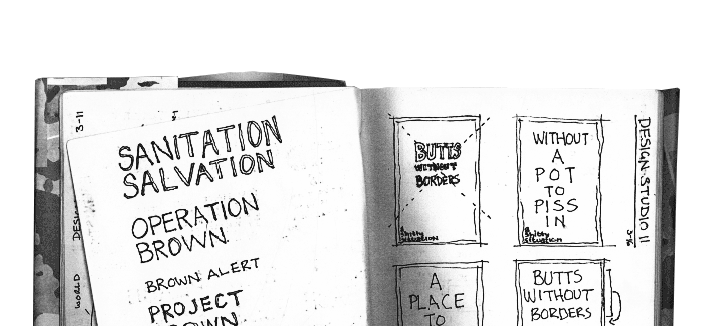 3-11
SANITATION
SALVATION
OPERATION
BROWN
BROWN ALERT
PROJECT
BROWN
WORLD DESIGN
BUTTS
WITHOUT
BORDERS
A Shitty
SITUATION
WITHOUT
A
POT
TO
PISS
IN
A Shitty
Situation
DESIGN STUDIO II
A
PLACE
TO
BUTTS
WITHOUT
BORDERS